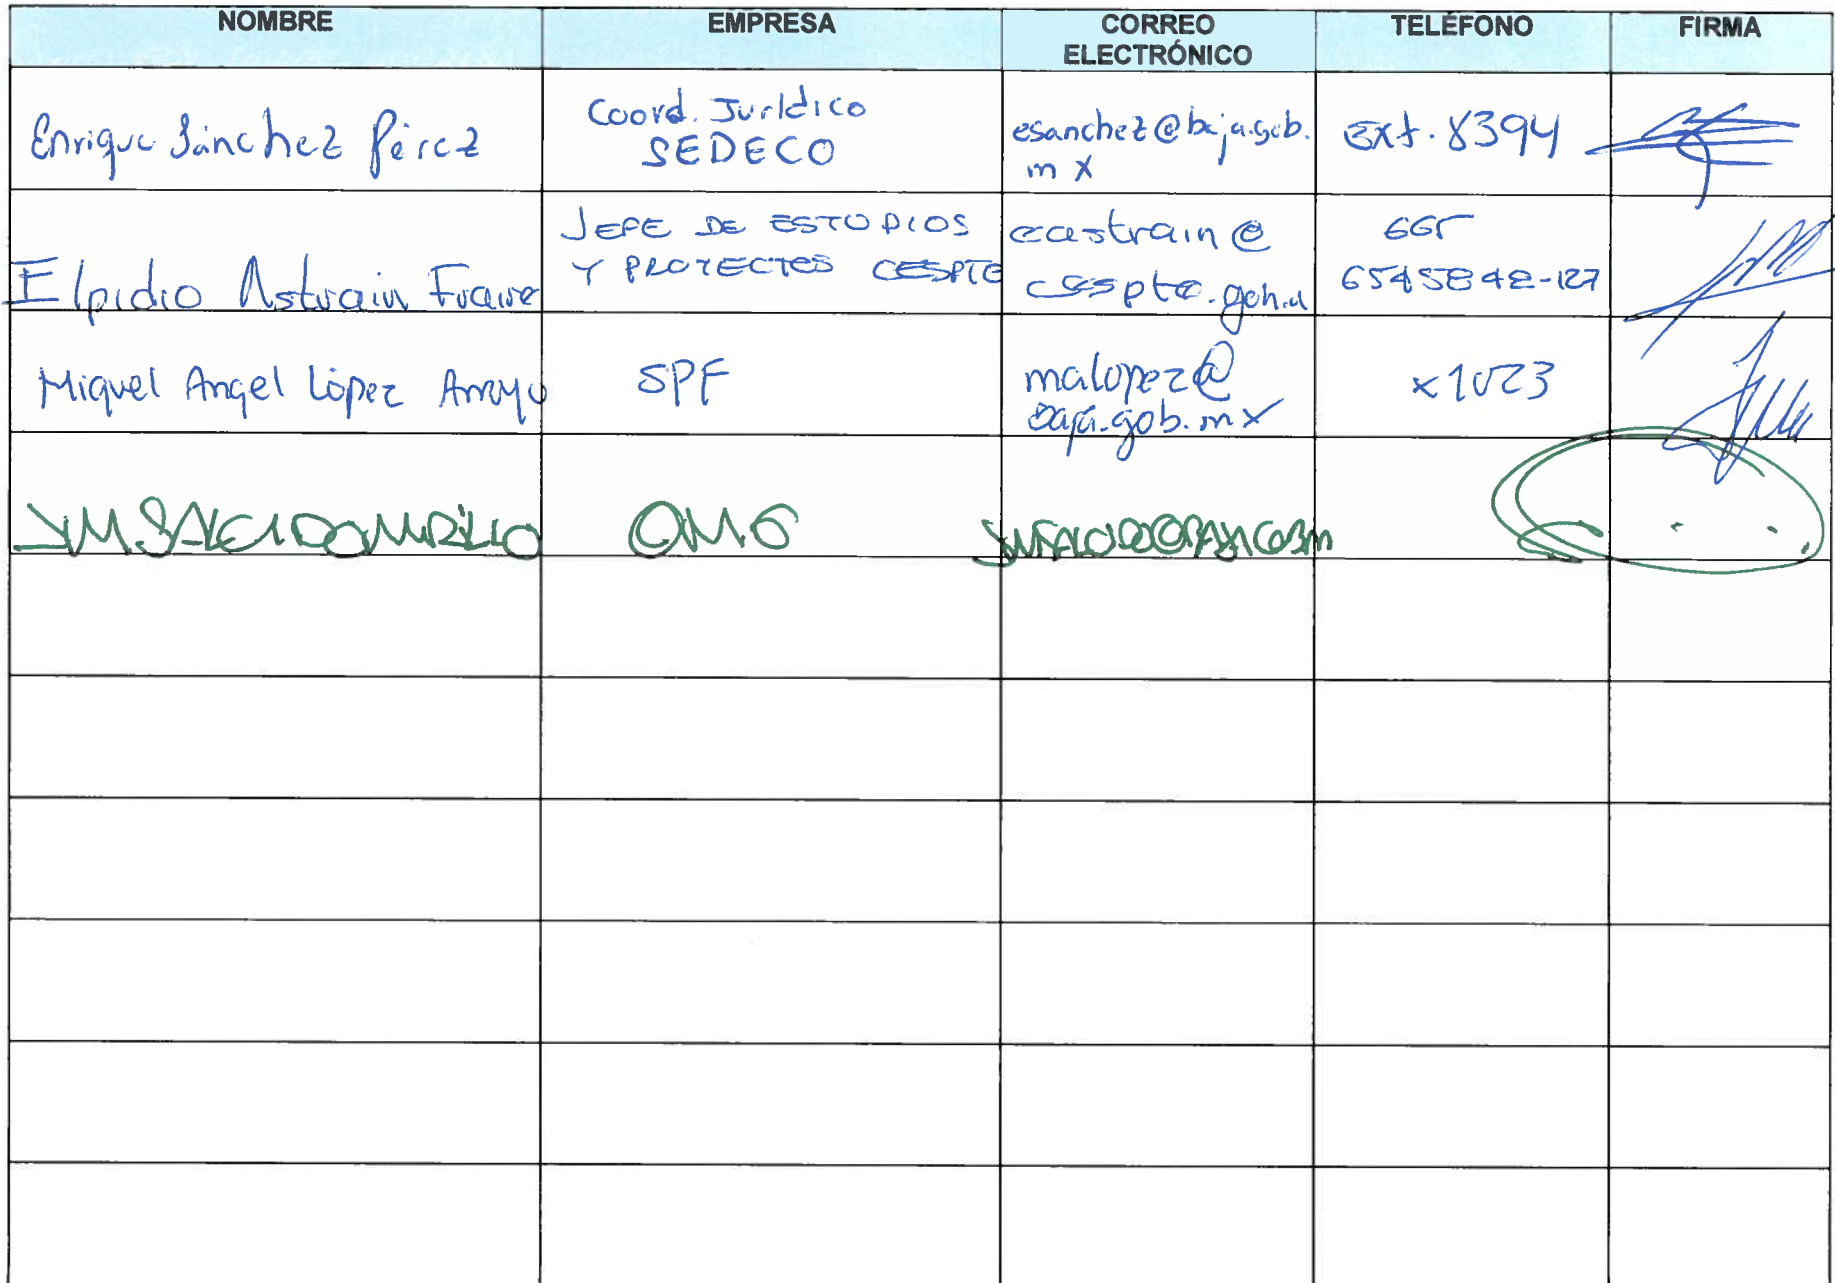 NOMBRE EMPRESA CORREO ELECTRÓNICO TELÉFONO FIRMA
Enrique Sánchez Pérez
Coord. Jurídico
SEDECO
esanchez@baja.gob.
mx
Ext. 8394
Elpidio Astrain
JEFE DE ESTUDIOS
Y PROYECTOS CESPTE
eastrain@
cespte.gob.
665
6545848-127
Miguel Angel López Arroyo
SPF
malopez@
baja.gob.mx
x1023
JM SALCIDO MURILLO